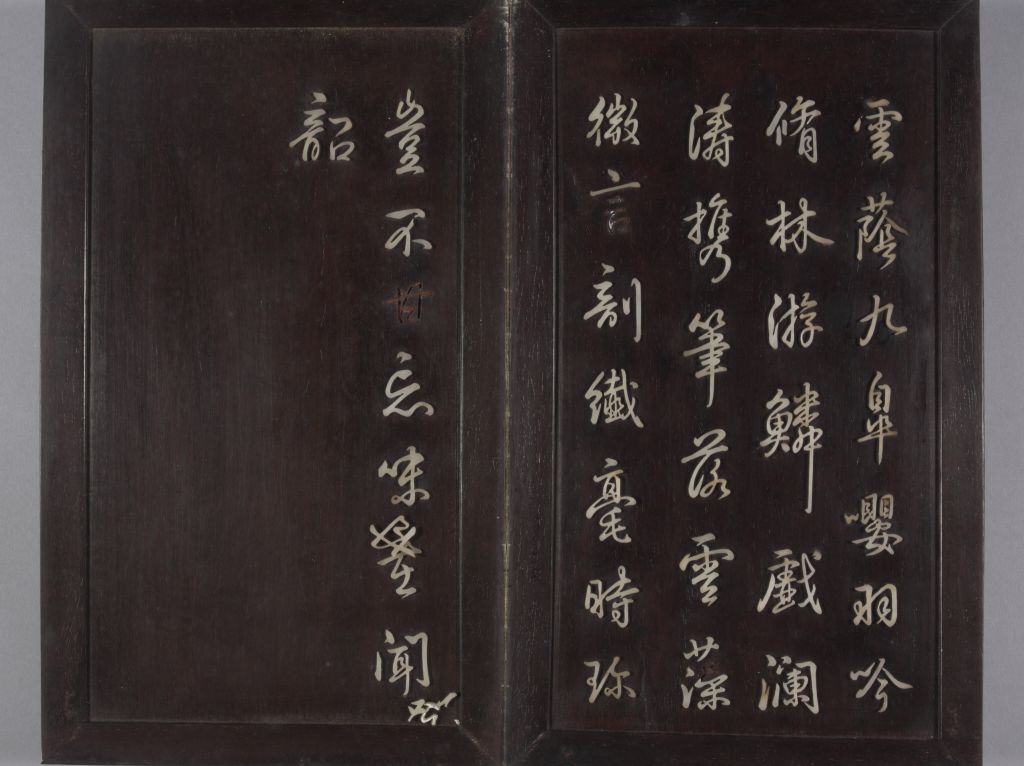 雲蔭九皐嚶羽吟
脩林游鱗戲瀾
濤携筆落雲藻
微言剖纖毫時珍
豈不甘忘味聞
韶